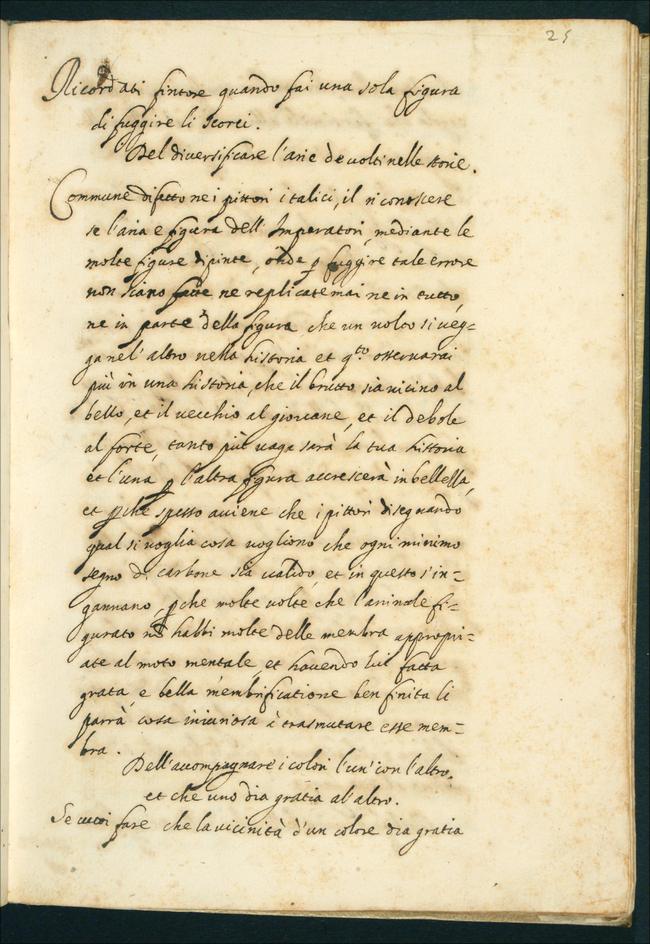 25
Ricordati fintore quando fai una sola figura
di fuggire li scorci.
Del diversificare l'arie de volti nelle storie.
Commune difatto ne i pittori italici, il riconoscere
se l'aria e figura dell' Imperatori, mediante le
molte figure dipinte, onde p fuggire tale errore
non siano fatte ne replicate mai ne in tutto,
ne in parte della figura che un volto si veg=
ga nel' altro nella historia et q.to osservarai
più in una historia, che il brutto sia vicino al
bello, et il vecchio al giovane, et il debole
al forte, tanto più vaga sarà la tua historia
et l'una p l'altra figura accrescerà in bellella,
et pche spesso aviene che i pittori disegnando
qual si voglia cosa vogliono che ogni minimo
segno di carbone sia valido, et in questo s'in=
gannano, pche molte volte che l'animale fi=
gurato nō habbi molte delle menbra appropri=
ate al moto mentale et havendo lui fatta
grata, e bella membrificatione ben finita li
parrà cosa iniuriosa à trasmutare esse mem=
bra.
Dell'accompagnare i colori l'un' con l'altro,
et che uno dia gratia al'altro.
Se vuoi fare che la vicinità d'un colore dia gratia